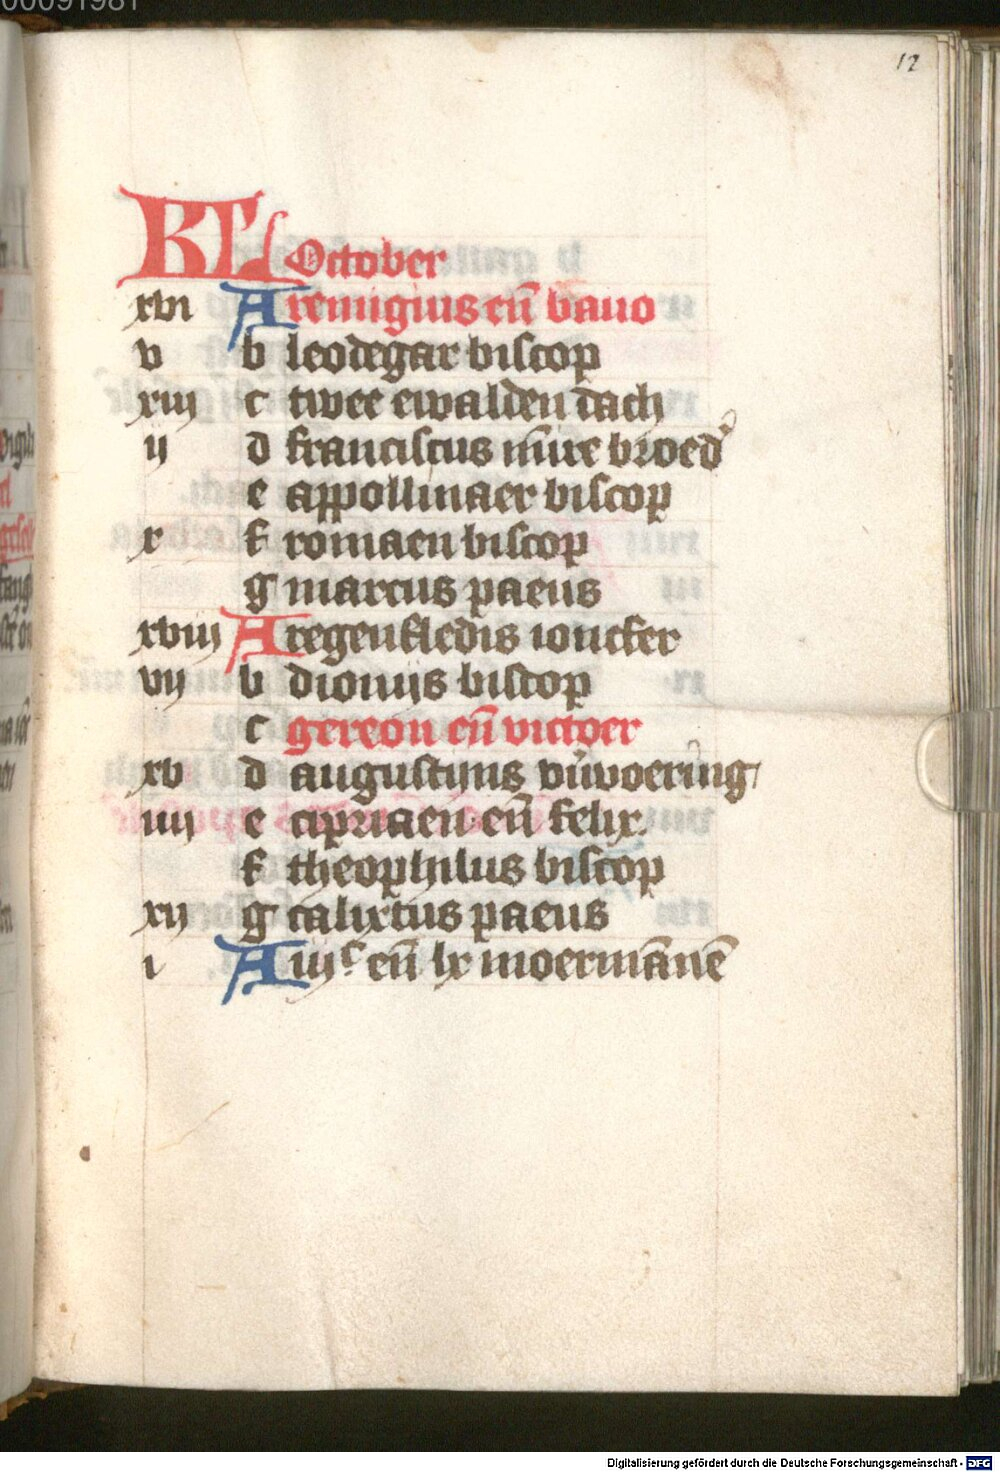 00091981
12
KL October
xvi A remigius eñ bavo
v b leodegar biscop
xiij c twee ewalden dach
ij d franciscus mīre broed'
e appollinaer biscop
x f romaen biscop
g marcus paeus
xviij A regenfledis ioncfer
vij b dionijs biscop
c gereon eñ victoer
xv d augustijns v'uoering
iiij e cipriaen eñ felix.
f theophilus biscop
xij g calixtus paeus
i A iijc eñ lx moermānē
Digitalisierung gefördert durch die Deutsche Forschungsgemeinschaft - DFG